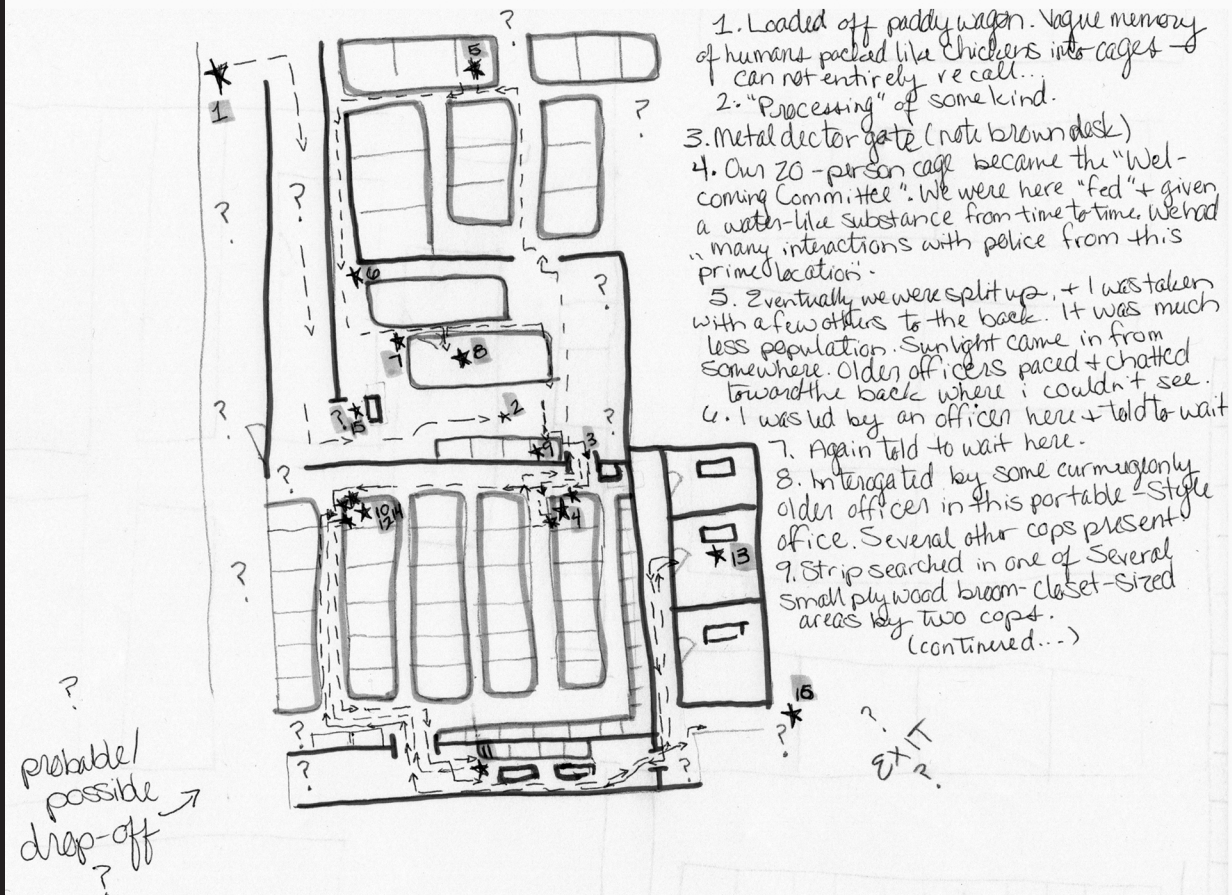 1. Loaded off paddy wagon. Vague memory
of humans packed like chickens into cages →
can not entirely recall...
2. "Processing" of some kind.
3. Metal dector gate (note brown desk)
4. Our 20-person cage became the "Wel-
coming Committee". We were here "fed" + given
a water-like substance from time to time. We had
many interactions with police from this
"prime location".
5. Eventually we were split up, + I was taken
with a few others to the back. It was much
less population. Sunlight came in from
somewhere. Older officers paced + chatted
toward the back where i couldn't see.
6. I was led by an officer here + told to wait
7. Again told to wait here.
8. Interogated by some curmugeonly
older officer in this portable-style
office. Several other cops present.
9. Strip searched in one of several
small plywood broom-closet-sized
areas by two cops.
(continered...)
?
5
1
?
?
?
6
?
7
8
?
?
15
2
?
9
3
?
10
12
14
4
13
?
?
11
?
?
?
15
?
?
EXIT
?
probable/
possible
drop-off
?